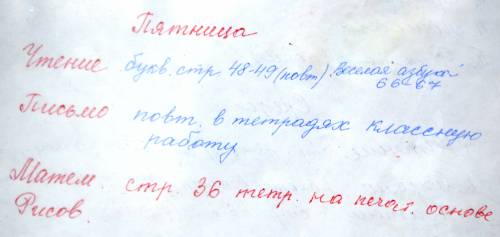 Пятница
Чтение букв. стр. 48-49 (повт). "Веселая азбука"
66-67
Письмо повт. в тетрадях классную
работу
Матем. стр. 36 тетр. на печат. основе
Рисов.